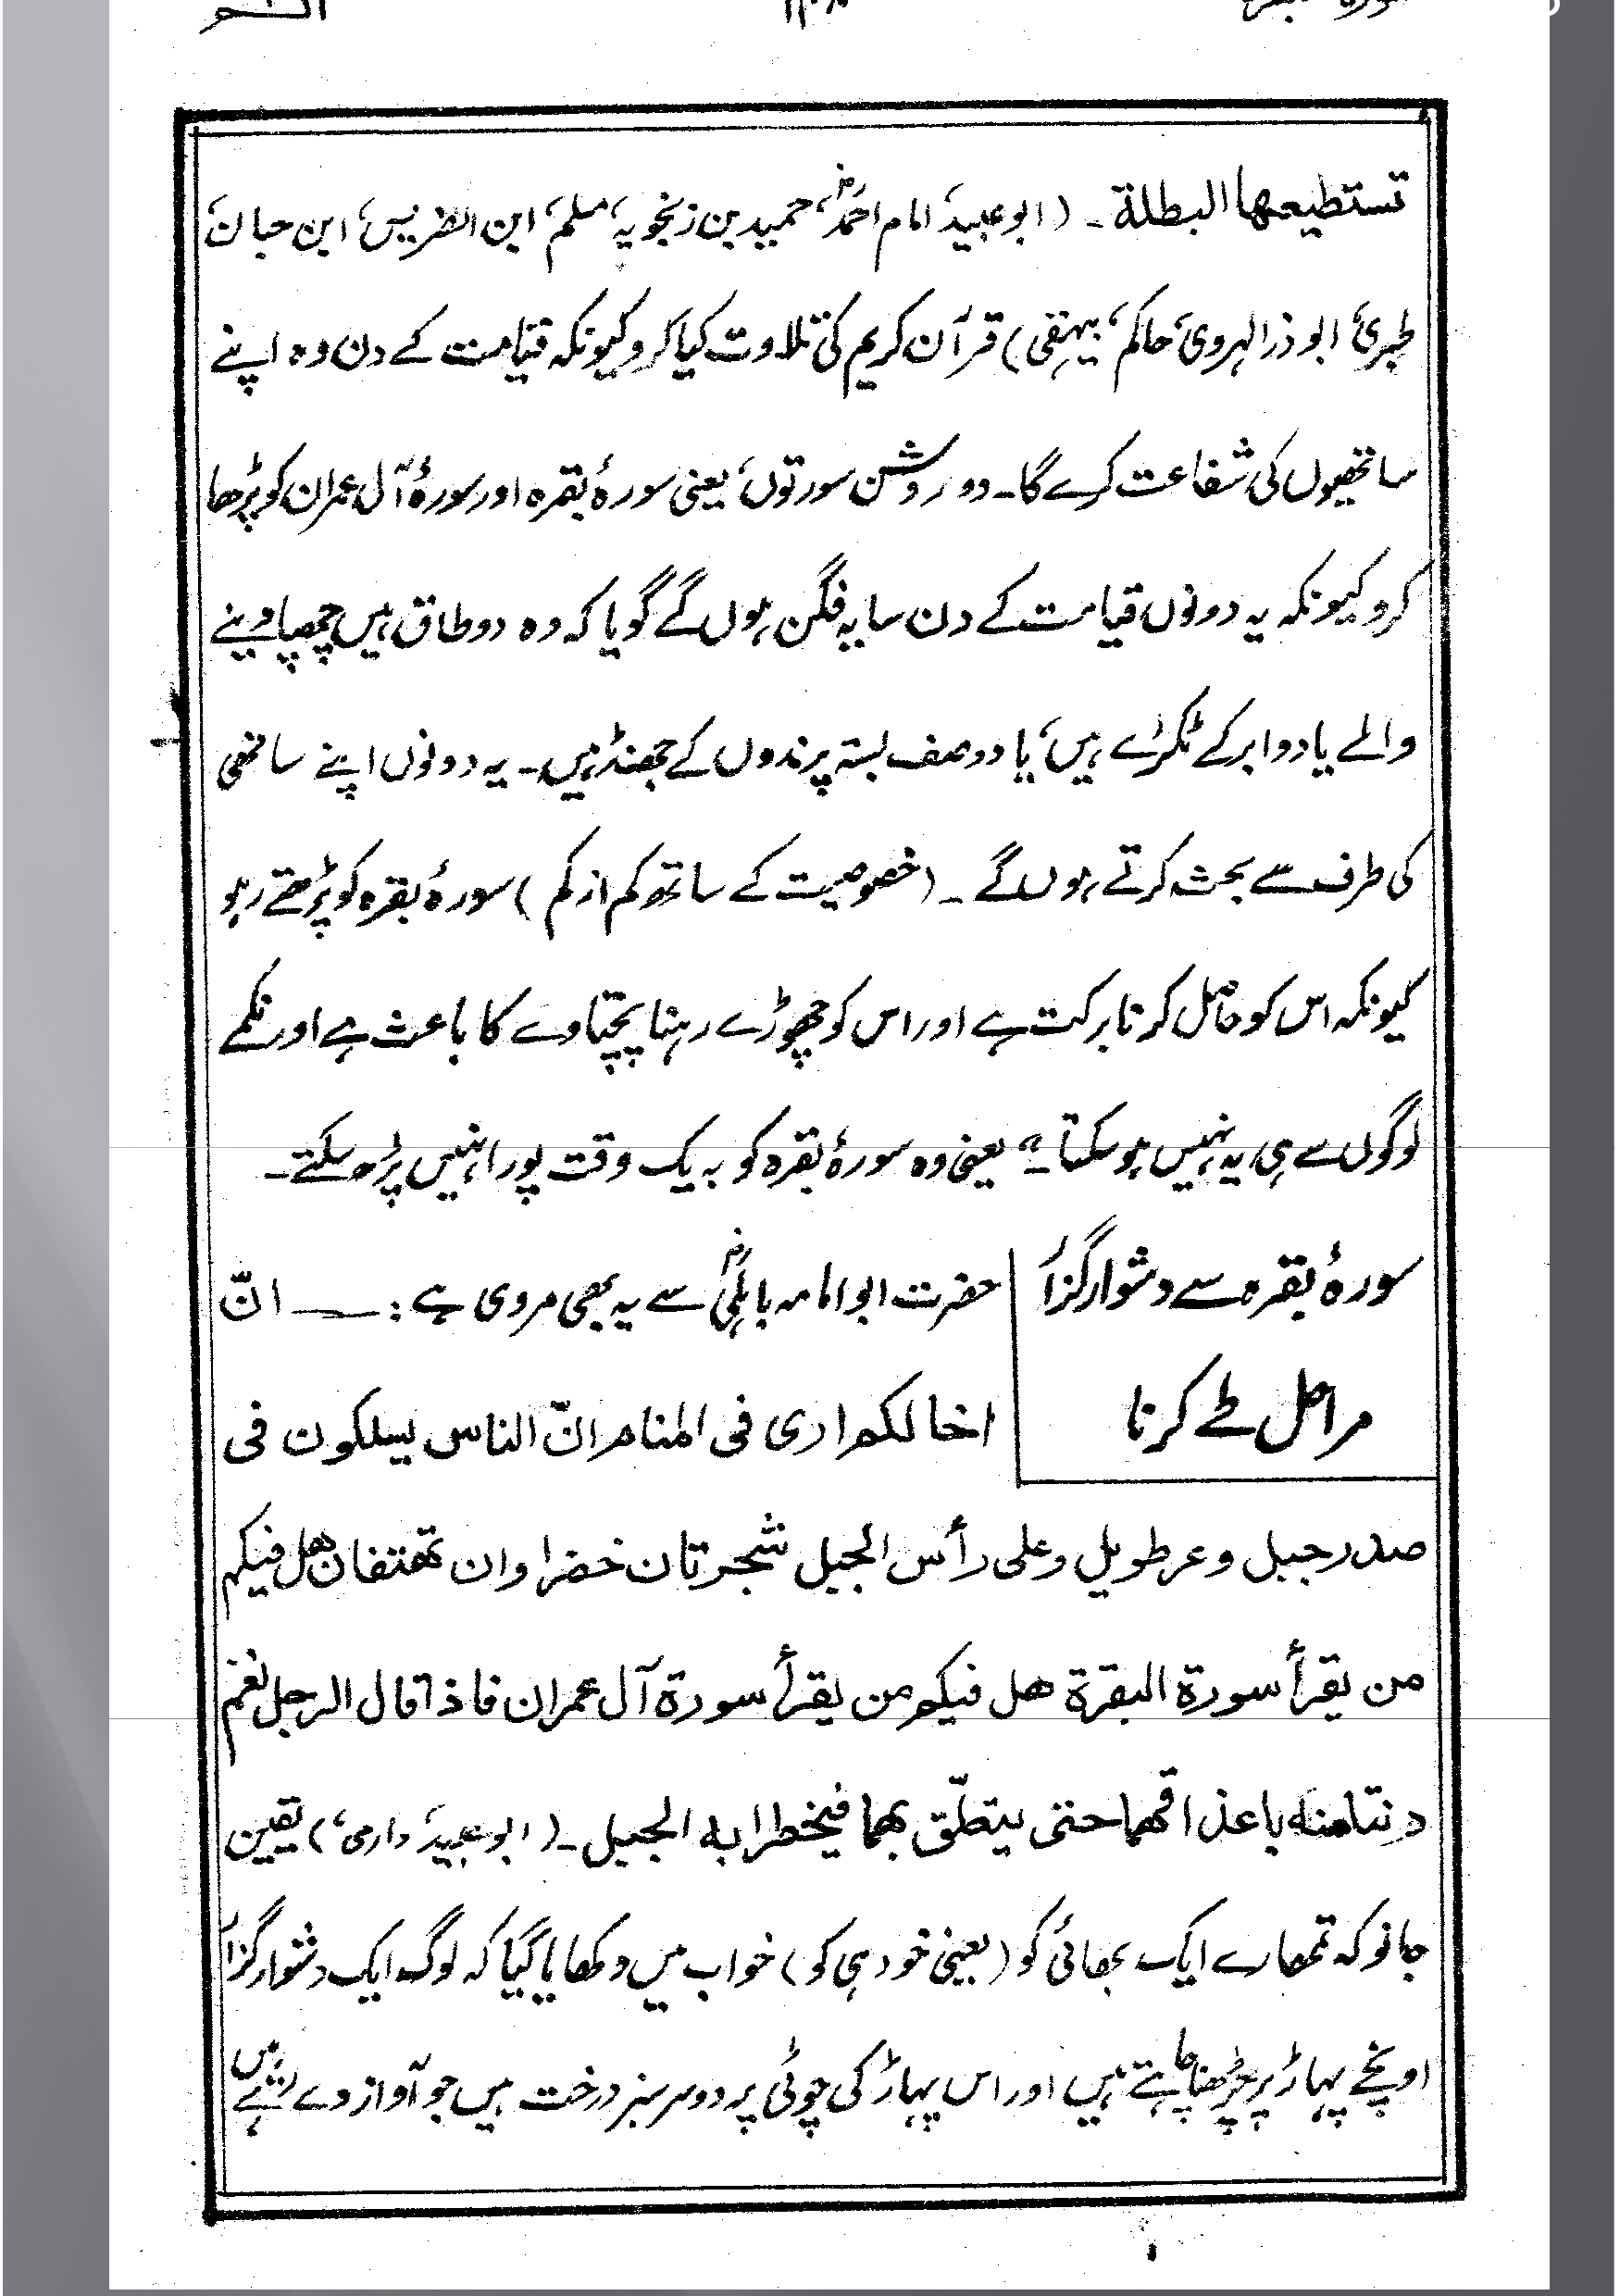 تستطیعھا البطلة ۔ (ابو عبید، امام احمدؒ، حمید بن زنجویہ، مسلم، ابن الضریس، ابن حبان،
طبری، ابوذر الہروی، حاکم، بیہقی) قرآن کریم کی تلاوت کیا کرو کیونکہ قیامت کے دن وہ اپنے
ساتھیوں کی شفاعت کرے گا۔ دو روشن سورتوں، یعنی سورۂ بقرہ اور سورۂ آل عمران کو پڑھا
کرو کیونکہ یہ دونوں قیامت کے دن سایہ فگن ہوں گے گویا کہ وہ دو طاق ہیں چھپا دینے
والے یا دو ابر کے ٹکڑے ہیں، یا دو صف بستہ پرندوں کے جھنڈ ہیں۔ یہ دونوں اپنے ساتھی
کی طرف سے بحث کرتے ہوں گے ۔ (خصوصیت کے ساتھ کم از کم) سورۂ بقرہ کو پڑھتے رہو
کیونکہ اس کو حاصل کرنا برکت ہے اور اس کو چھوڑے رہنا پچتاوے کا باعث ہے اور نکمے
لوگوں سے ہی یہ نہیں ہو سکتا۔" یعنی وہ سورۂ بقرہ کو بہ یک وقت پورا نہیں پڑھ سکتے۔
سورۂ بقرہ سے دشوار گزار
مراحل طے کرنا
حضرت ابو امامہ باہلیؓ سے یہ بھی مروی ہے : ــــ انّ
اخا لکم اری فی المنام انّ الناس یسلکون فی
صدر جبل وعر طویل وعلی رأس الجبل شجرتان خضراوان تھتفان ھل فیکم
من یقرأ سورة البقرة ھل فیکم من یقرأ سورة آل عمران فاذا قال الرجل نعم
دنتا منه باعذاقھما حتی یتعلّق بھما فیخطرا به الجبل ۔ (ابو عبید، دارمی) یقین
جانو کہ تمھارے ایک بھائی کو (یعنی خود ہی کو) خواب میں دکھایا گیا کہ لوگ ایک دشوار گزار
اونچے پہاڑ پر چڑھنا چاہتے ہیں اور اس پہاڑ کی چوٹی پر دو سرسبز درخت ہیں جو آواز دے رہے ہیں